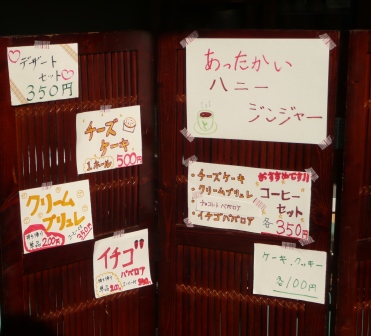 デザート
セット
350円
チーズ
ケーキ
1ホール 500円
クリーム
ブリュレ
単品 200円
イチゴ
ババロア
単品
あったかい
ハニー
ジンジャー
おすすめです!!
・チーズケーキ
・クリームブリュレ
チョコレートババロア
・イチゴババロア
コーヒー
セット
各350円
ケーキ、クッキー
各100円